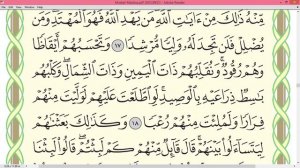 مِّنْهُ ذَٰلِكَ مِنْ ءَايَٰتِ ٱللَّهِ مَن يَهْدِ ٱللَّهُ فَهُوَ ٱلْمُهْتَدِ وَمَن
يُضْلِلْ فَلَن تَجِدَ لَهُۥ وَلِيًّا مُّرْشِدًا ١٧ وَتَحْسَبُهُمْ أَيْقَاظًا
وَهُمْ رُقُودٌ وَنُقَلِّبُهُمْ ذَاتَ ٱلْيَمِينِ وَذَاتَ ٱلشِّمَالِ وَكَلْبُهُم
بَٰسِطٌ ذِرَاعَيْهِ بِٱلْوَصِيدِ لَوِ ٱطَّلَعْتَ عَلَيْهِمْ لَوَلَّيْتَ مِنْهُمْ
فِرَارًا وَلَمُلِئْتَ مِنْهُمْ رُعْبًا ١٨ وَكَذَٰلِكَ بَعَثْنَٰهُمْ
لِيَتَسَآءَلُوا۟ بَيْنَهُمْ قَالَ قَآئِلٌ مِّنْهُمْ كَمْ لَبِثْتُمْ قَالُوا۟ لَبِثْنَا